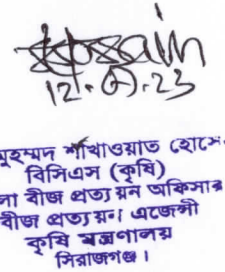 12.09.23
মুহম্মদ শাখাওয়াত হোসেন
বিসিএস (কৃষি)
লা বীজ প্রত্যয়ন অফিসার
বীজ প্রত্যয়ন এজেন্সী
কৃষি মন্ত্রণালয়
সিরাজগঞ্জ।